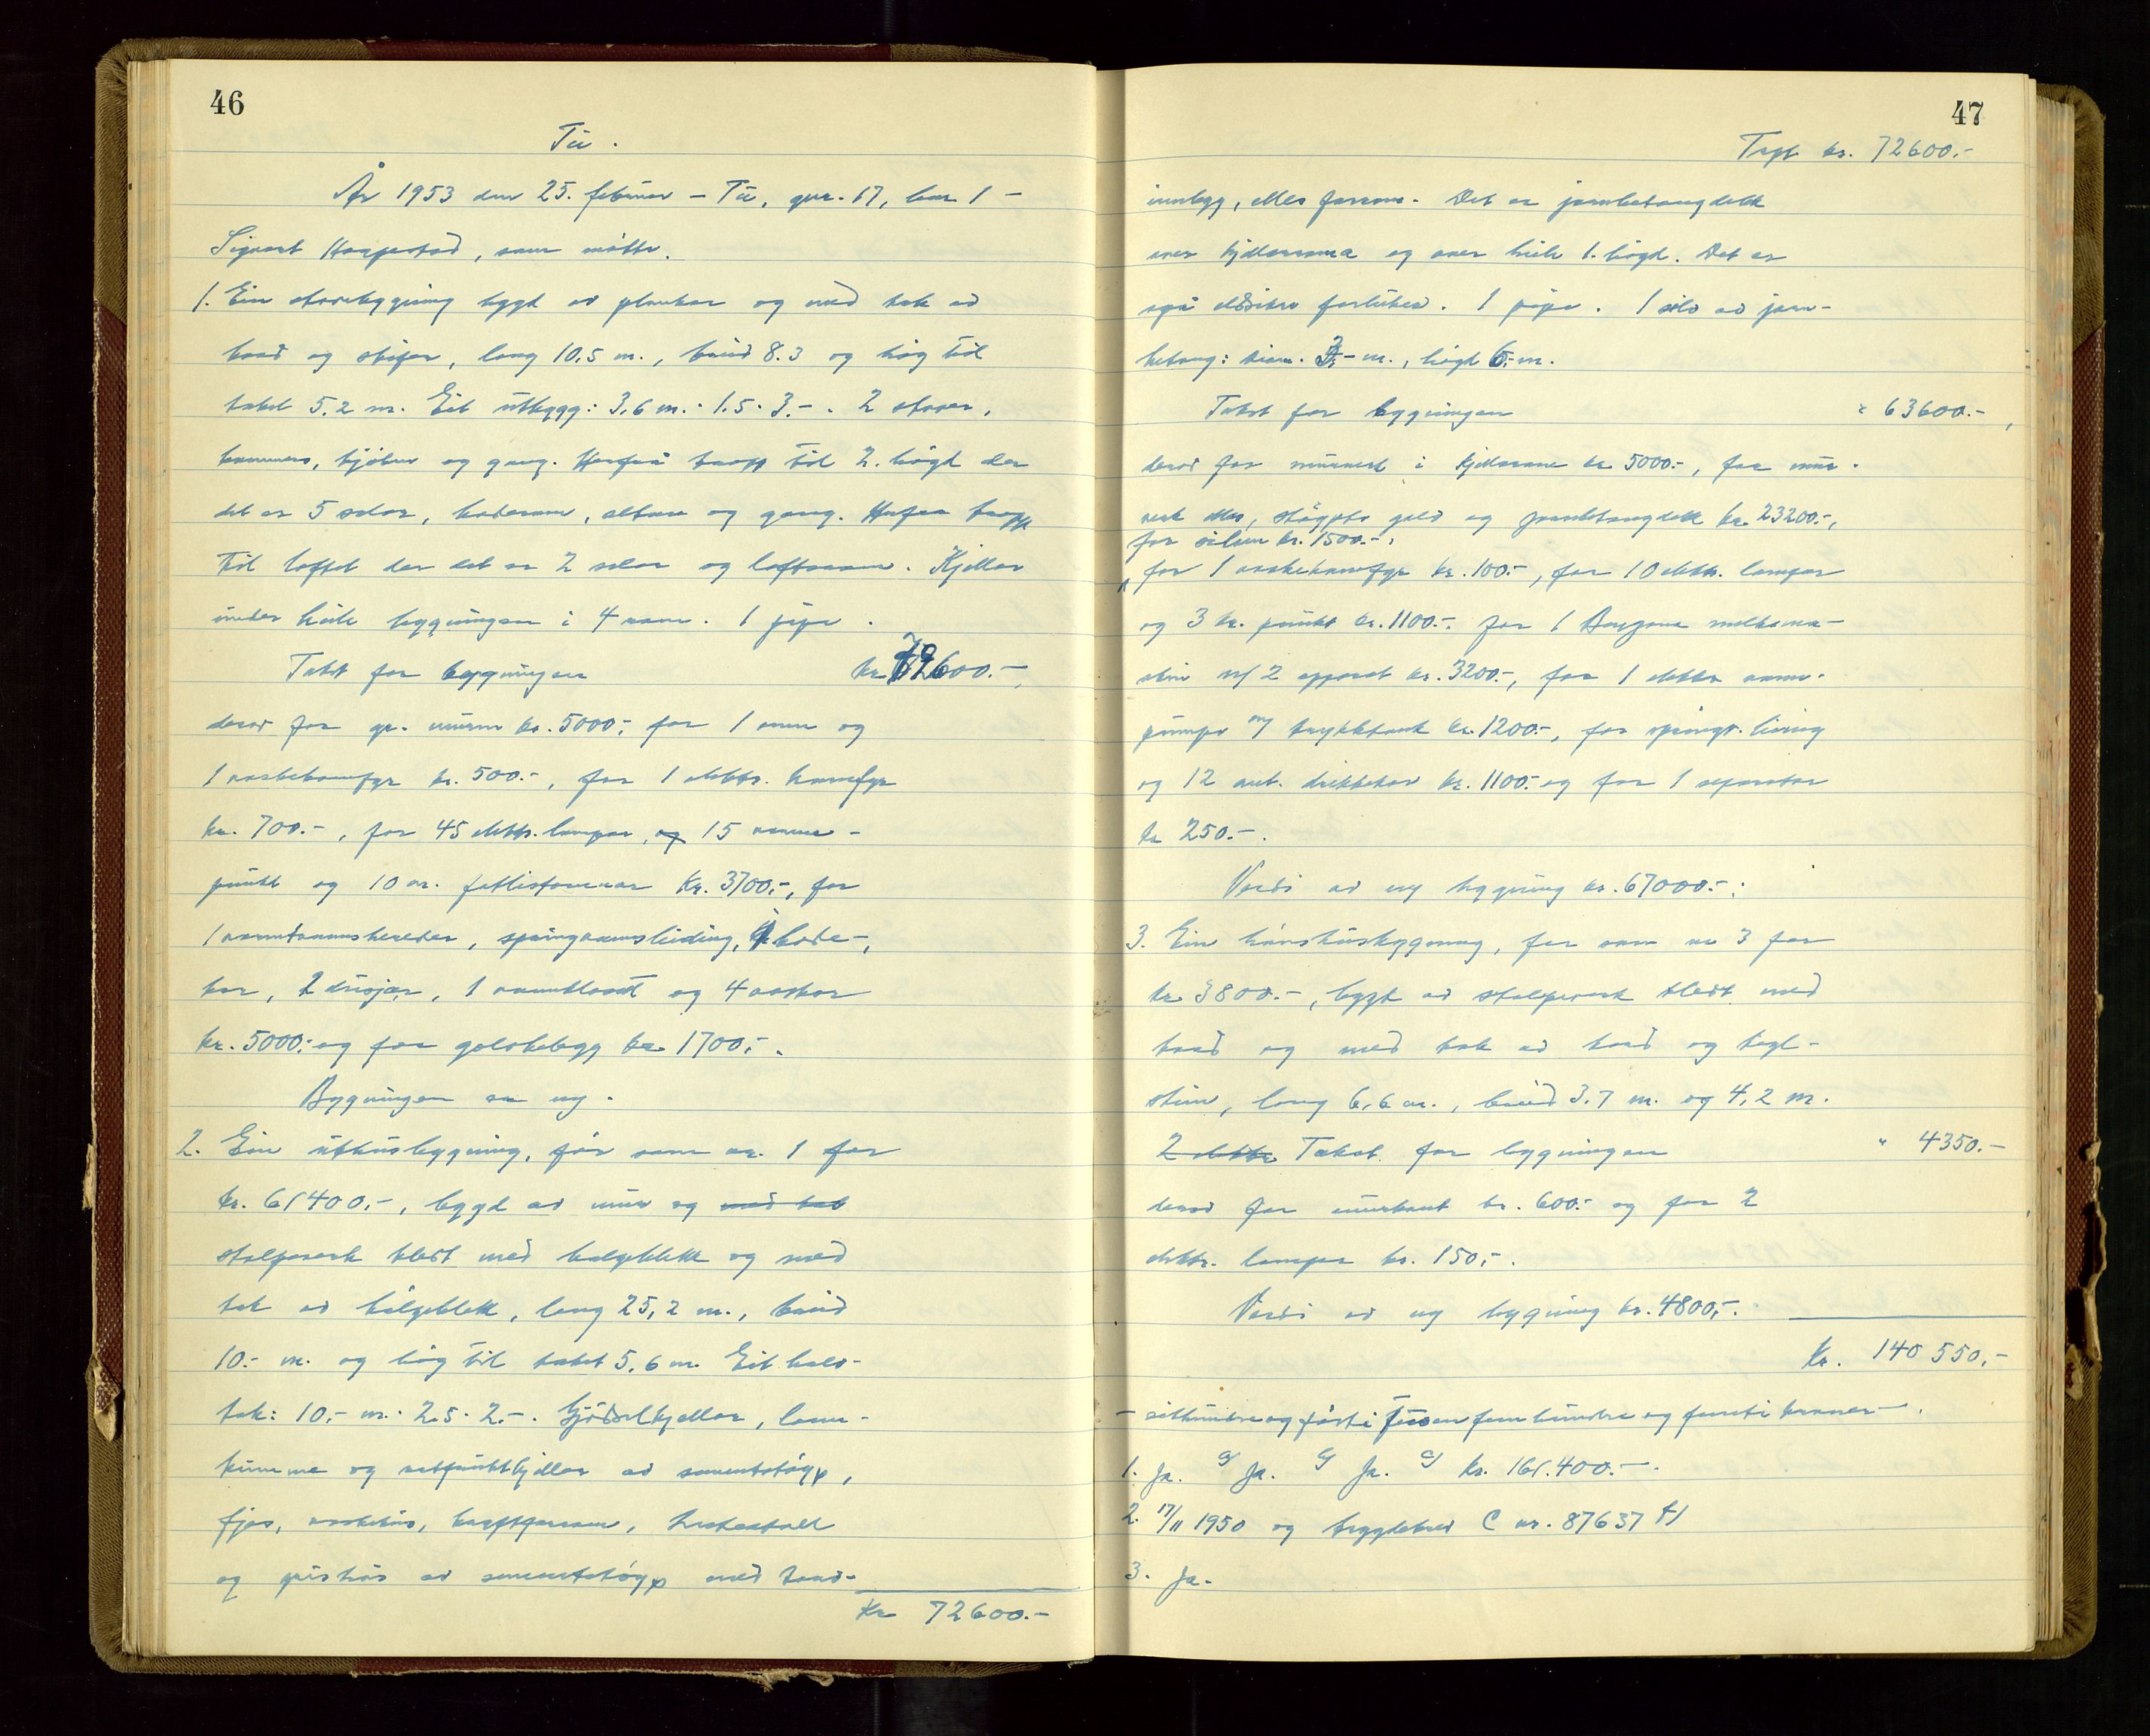 46
Tu.
År 1953 den 25. februar - Tu, gnr. 17, bnr 1 -
Sigvart Haarpestad, som møtte.
1. Ein stovebygning bygt av plankar og med tak av
bord og skifer, lang 10.5 m., breid 8.3 og høg til
taket 5.2 m. Eit utbygg: 3,6 m. · 1.5 · 3.-. 2 stover,
kammers, kjøken og gang. Herfrå trapp til 2. høgd der
det er 5 rom, baderom, altan og gang. Herfra trapp
til loftet der det er 2 rom og loftsrom. Kjellar
under heile bygningen i 4 rom. 1 pipe.
Takst for bygningen kr 72600.-,
derav for gr. muren kr. 5000.-, for 1 omn og
1 vaskekomfyr kr. 500.-, for 1 elektr. komfyr
kr. 700.-, for 45 elektr. lampar, og 15 varme-
punkt og 10 m. fotlistomnar kr. 3700.-, for
1 varmtvannsbereder, springvannsleiding, 1 bade-
kar, 2 dusjar, 1 vannklosett og 4 vaskar
kr. 5000.- og for golvbelegg kr 1700.-.
Bygningen er ny.
2. Ein uthusbygning, før som nr. 1 for
kr. 61400.-, bygd av mur og med tak
stolpeverk kledt med bølgeblekk og med
tak av bølgeblekk, lang 25,2 m., breid
10.- m. og høg til taket 5.6 m. Eit halv-
tak: 10.- m. · 2.5 · 2.-. Gjødselkjellar, land-
kumme og rotfruktkjellar av sementstøyp,
fjøs, vaskehus, kraftforrom, hestestall
og grishus av sementstøyp med tend-
Kr 72600.-
47
Trpt kr. 72600.-
innlegg, elles forrom. Det er jernbetongdekk
over kjellarrома og over heile 1. høgd. Det er
også eldsikre forluker. 1 pipe. 1 silo av jern-
betong: diam. 3.- m., høgd 6.- m.
Takst for bygningen " 63600.-,
derav for murverk i kjellarane kr 5000.-, for mur-
verk elles, støypte golv og jernbetongdekk kr. 23200.-,
for siloen kr. 1500.-,
for 1 vaskekomfyr kr. 100.-, for 10 elektr. lampar
og 3 kr. punkt kr. 1100.-. for 1 melkema-
skin m/ 2 apparat kr. 3200.-, for 1 elektr. vann-
pumpe m/ trykktank kr. 1200.-, for springv. leiing
og 12 aut. drikkekar kr. 1100.- og for 1 separator
kr 250.-.
Verdi av ny bygning kr. 67000.-.
3. Ein hønshusbygning, før som nr 3 for
kr 3800.-, bygt av stolpeverk kledt med
bord og med tak av bord og tegl-
stein, lang 6,6 m., breid 3.7 m. og 4,2 m.
2 elektr Takst for bygningen " 4350.-
derav for murkant kr. 600.- og for 2
elektr. lampar kr. 150.-.
Verdi av ny bygning kr. 4800.-.
Kr. 140 550.-
- eithundre og førti tusen fem hundre og femti kroner -.
1. Ja. Ja. Ja. kr. 161.400.-.
2. 17/11 1950 og trygdebrev C nr. 87637
3. Ja.